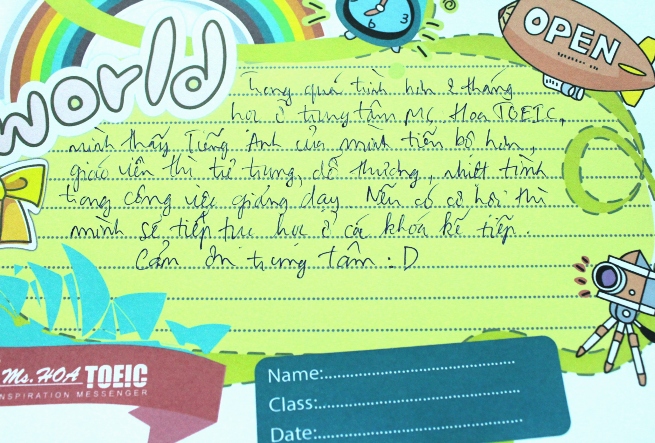 world
6 3
OPEN
Trong quá trình hơn 2 tháng
học ở trung tâm Ms Hoa TOEIC,
mình thấy Tiếng Anh của mình tiến bộ hơn,
giáo viên thì trẻ trung, dễ thương, nhiệt tình
trong công việc giảng dạy. Nếu có cơ hội thì
mình sẽ tiếp tục học ở các khoá kế tiếp.
Cảm ơn trung tâm :D
Ms. HOA TOEIC
INSPIRATION MESSENGER
Name:
Class:
Date: